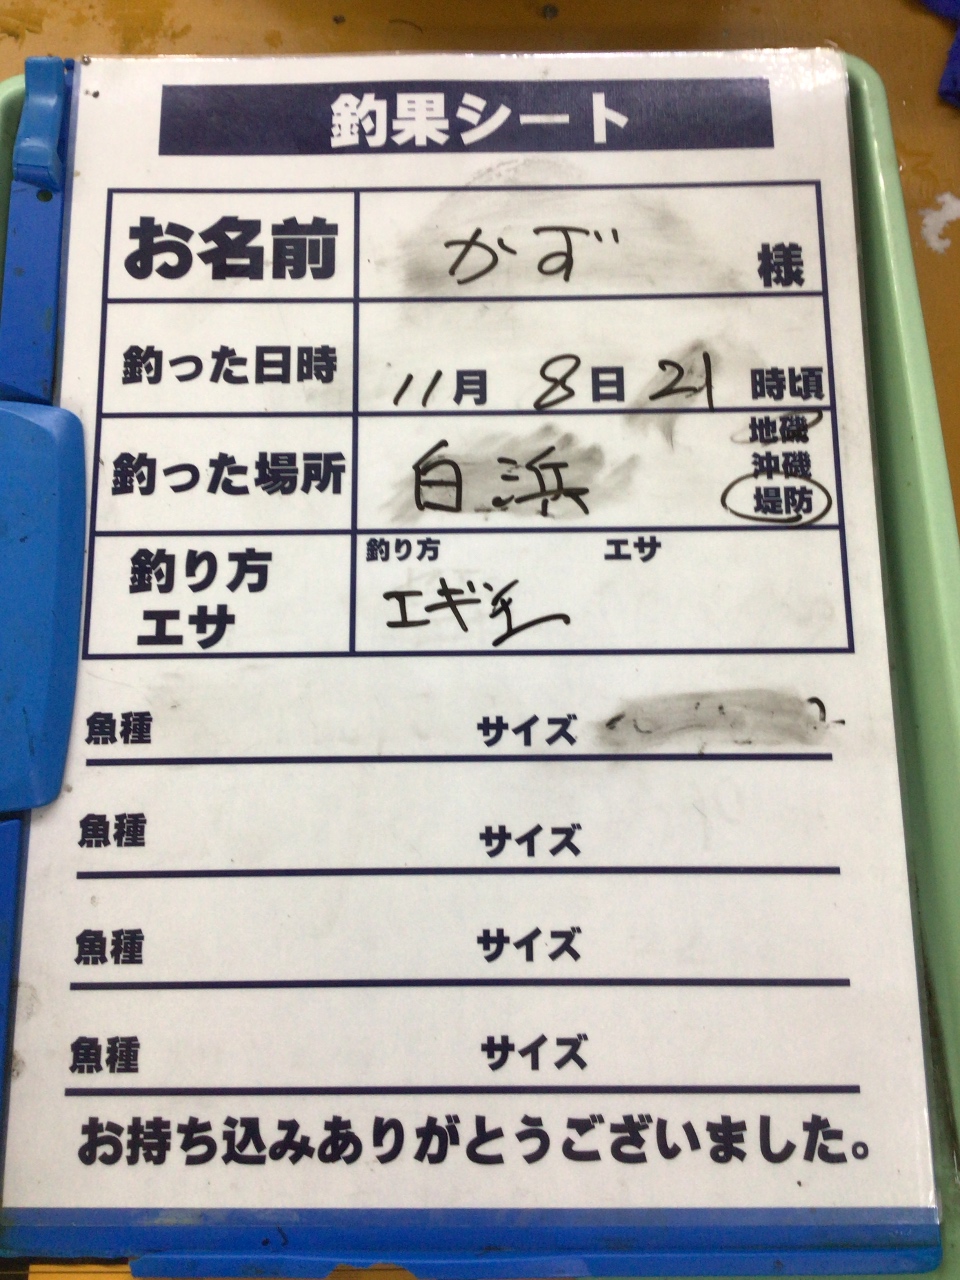 釣果シート
お名前 かず 様
釣った日時 11月 8日 21 時頃
釣った場所 白浜 地磯
沖磯
堤防
釣り方 エサ
釣り方 エギ
エサ
魚種 サイズ
魚種 サイズ
魚種 サイズ
魚種 サイズ
お持ち込みありがとうございました。